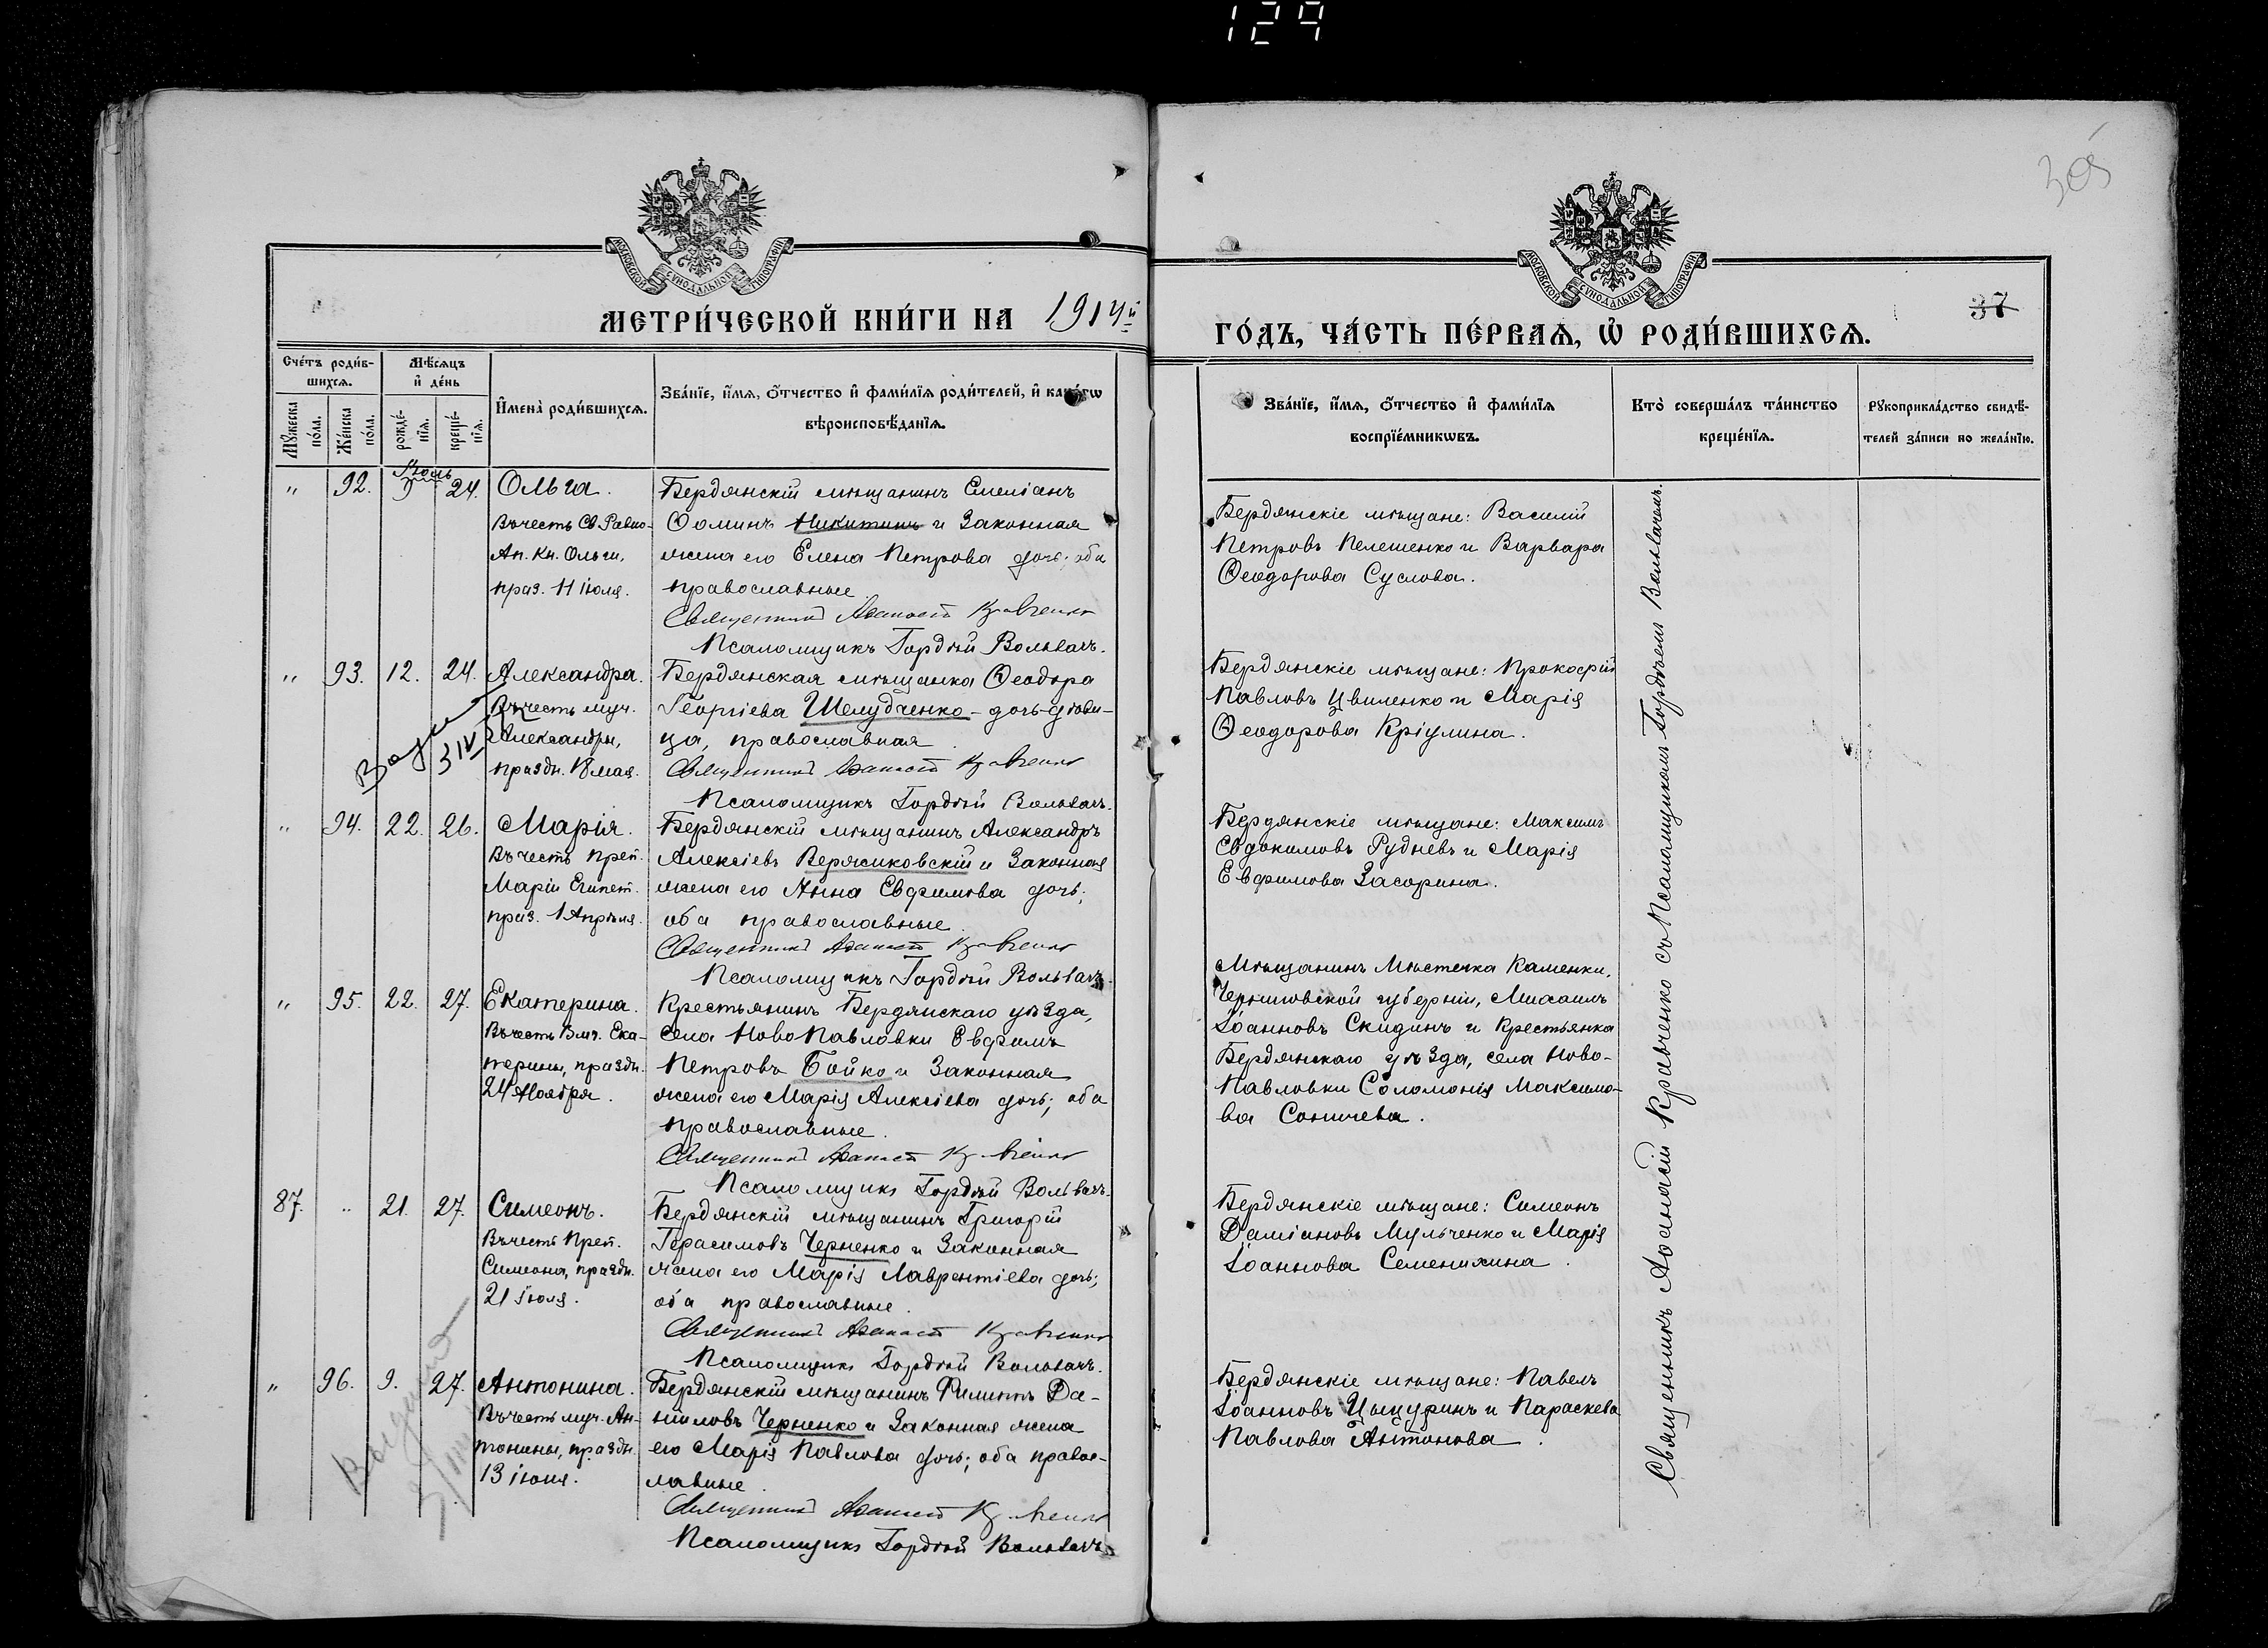 129
305
37
МОСКОВСКОЙ СѴНОДАЛЬНОЙ ТИПОГРАФІИ
МОСКОВСКОЙ СѴНОДАЛЬНОЙ ТИПОГРАФІИ
МЕТРИ́ЧЕСКОЙ КНИ́ГИ НА 1914й
ГО́ДЪ, ЧА́СТЬ ПЕ́РВАѦ, Ѡ҆ РОДИ́ВШИХСѦ.
Счéтъ роди́в-
шихсѧ.
Мꙋжеска
по́ла.
Же́нска
по́ла.
Мѣ́сѧцъ
и҆ де́нь
рожде́-
нїѧ.
креще́-
нїѧ.
И҆мена̀ роди́вшихсѧ.
Зва́нїе, и҆́мѧ, ѻ҆́тчество и҆ фами́лїѧ роди́телей, и҆ како́гѡ
вѣроисповѣ́данїѧ.
Зва́нїе, и҆́мѧ, ѻ҆́тчество и҆ фами́лїѧ
воспрїе́мникѡвъ.
Кто̀ соверша́лъ та́инство
креще́нїѧ.
Рꙋкоприкла́дство свидѣ́-
телей за́писи по жела́нїю.
Іюль
" 92. 9 24. Ольга.
Въ честь Св. Равно-
Ап. Кн. Ольги,
праз. 11 іюля.
Бердянскій мѣщанинъ Емеліанъ
Ѳоминъ Никитинъ и законная
жена его Елена Петрова дочь; оба
православные
Священникъ Аѳанасій Кравченко
Псаломщикъ Гордѣй Вольвачъ.
Бердянскіе мѣщане: Василій
Петровъ Пелешенко и Варвара
Ѳеодорова Суслова.
" 93. 12. 24. Александра.
Въ честь муч.
Александры,
праздн. 18 мая.
Бердянская мѣщанка Ѳеодора
Георгіева Шелудченко - дочь-дѣви-
ца, православная
Священникъ Аѳанасій Кравченко
Псаломщикъ Гордѣй Вольвачъ.
Бердянскіе мѣщане: Прокофій
Павловъ Цвиленко и Марія
Ѳеодорова Кріулина.
" 94. 22. 26. Марія.
Въ честь Преп.
Маріи Египет.
праз. 1 Апрѣля.
Бердянскій мѣщанинъ Александръ
Алексіевъ Верясиковскій и законная
жена его Анна Евфимова дочь;
оба православные
Священникъ Аѳанасій Кравченко
Псаломщикъ Гордѣй Вольвачъ.
Бердянскіе мѣщане: Максимъ
Евдокимовъ Рудневъ и Марія
Евфимова Засорина.
" 95. 22. 27. Екатерина.
Въ честь Влмч. Ека-
терины, праздн.
24 Ноября.
Крестьянинъ Бердянскаго уѣзда,
села НовоПавловки Евфимъ
Петровъ Бойко и законная
жена его Марія Алексіева дочь; оба
православные.
Священникъ Аѳанасій Кравченко
Псаломщикъ Гордѣй Вольвачъ.
Мѣщанинъ Мѣстечка Каменки,
Черниговской губерніи, Михаилъ
Іоанновъ Скидинъ и крестьянка
Бердянскаго уѣзда, села Ново-
Павловки Соломонія Максимо-
ва Сопичева.
87. " 21. 27. Симеонъ.
Въ честь Преп.
Симеона, праздн.
21 Іюля.
Бердянскій мѣщанинъ Григорій
Герасимовъ Черненко и законная
жена его Марія Лаврентіева дочь;
оба православные.
Священникъ Аѳанасій Кравченко
Псаломщикъ Гордѣй Вольвачъ.
Бердянскіе мѣщане: Симеонъ
Даміановъ Мульченко и Марія
Іоаннова Семенихина.
" 96. 9. 27. Антонина.
Въ честь муч. Ан-
тонины, праздн.
13 іюня.
Бердянскій мѣщанинъ Филиппъ Да-
ніиловъ Черненко и законная жена
его Марія Павлова дочь; оба правос-
лавные.
Священникъ Аѳанасій Кравченко
Псаломщикъ Гордѣй Вольвачъ.
Бердянскіе мѣщане: Павелъ
Іоанновъ Цыцуринъ и Параскева
Павлова Антонова.
Священникъ Аѳанасій Кравченко съ Псаломщикомъ Гордѣемъ Вольвачемъ.